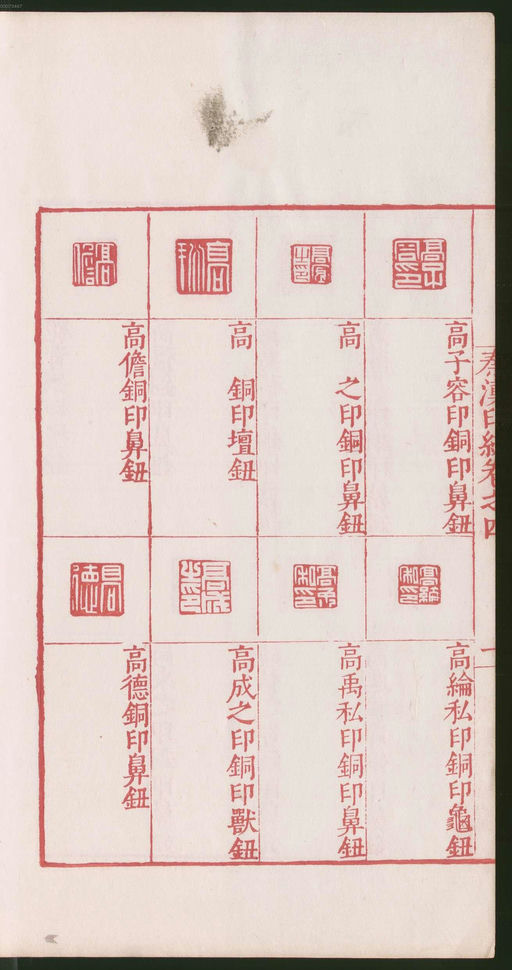 秦漢印統卷之四
一
高子容印銅印鼻鈕
高　之印銅印鼻鈕
高　銅印壇鈕
高儋銅印鼻鈕
高綸私印銅印龜鈕
高禹私印銅印鼻鈕
高成之印銅印獸鈕
高德銅印鼻鈕